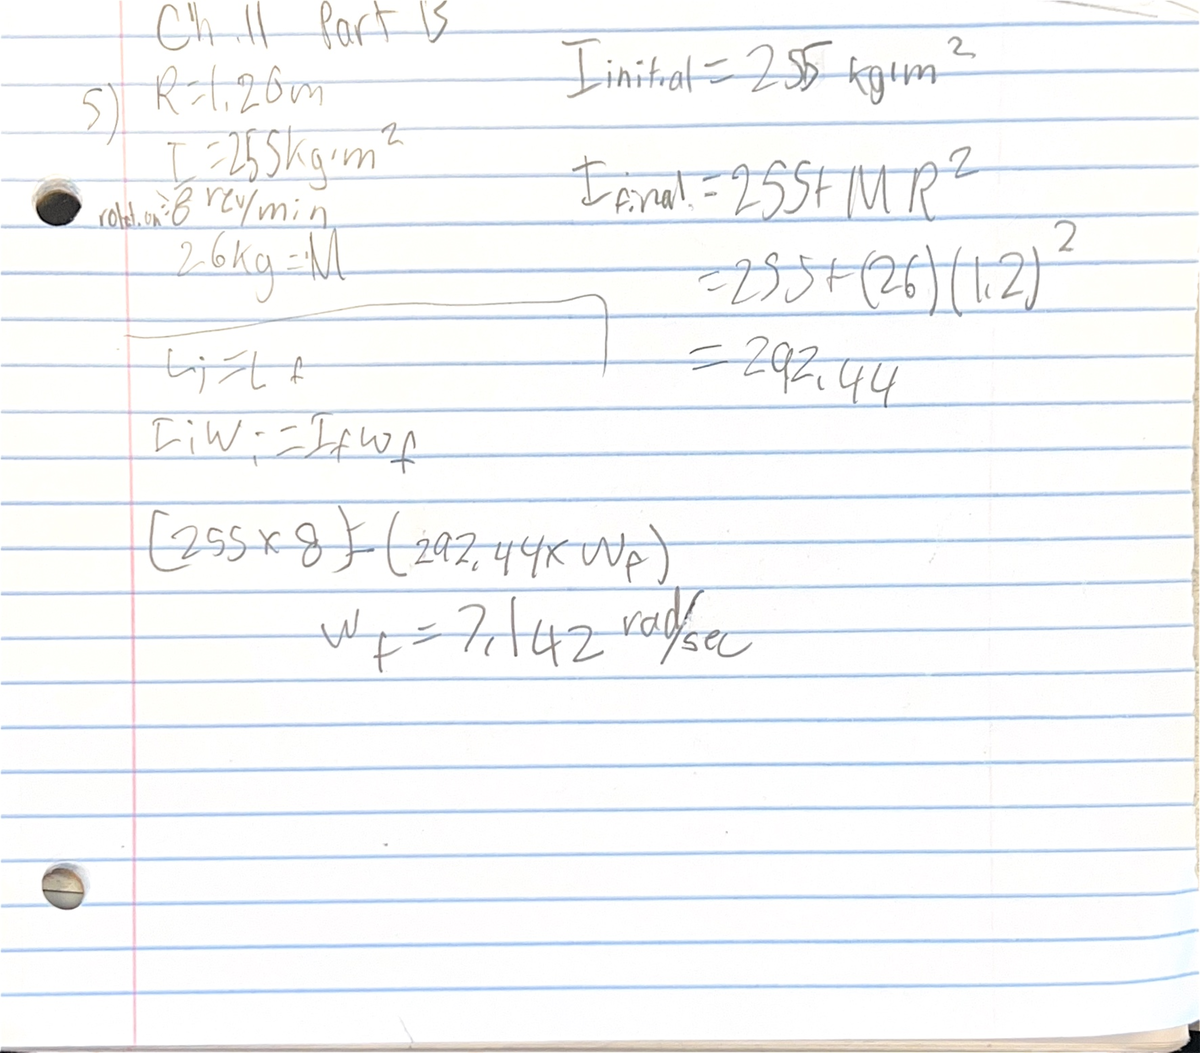 Ch.11 Part B
5) R=1.20m
I=255kg·m²
rotation: 8 rev/min
26kg=M
Li=Lf
IiWi=IfWf
(255x8)=(292.44xWf)
Wf=7.142 rad/sec
Iinitial=255 kg·m²
Ifinal=255+MR²
=255+(26)(1.2)²
=292.44